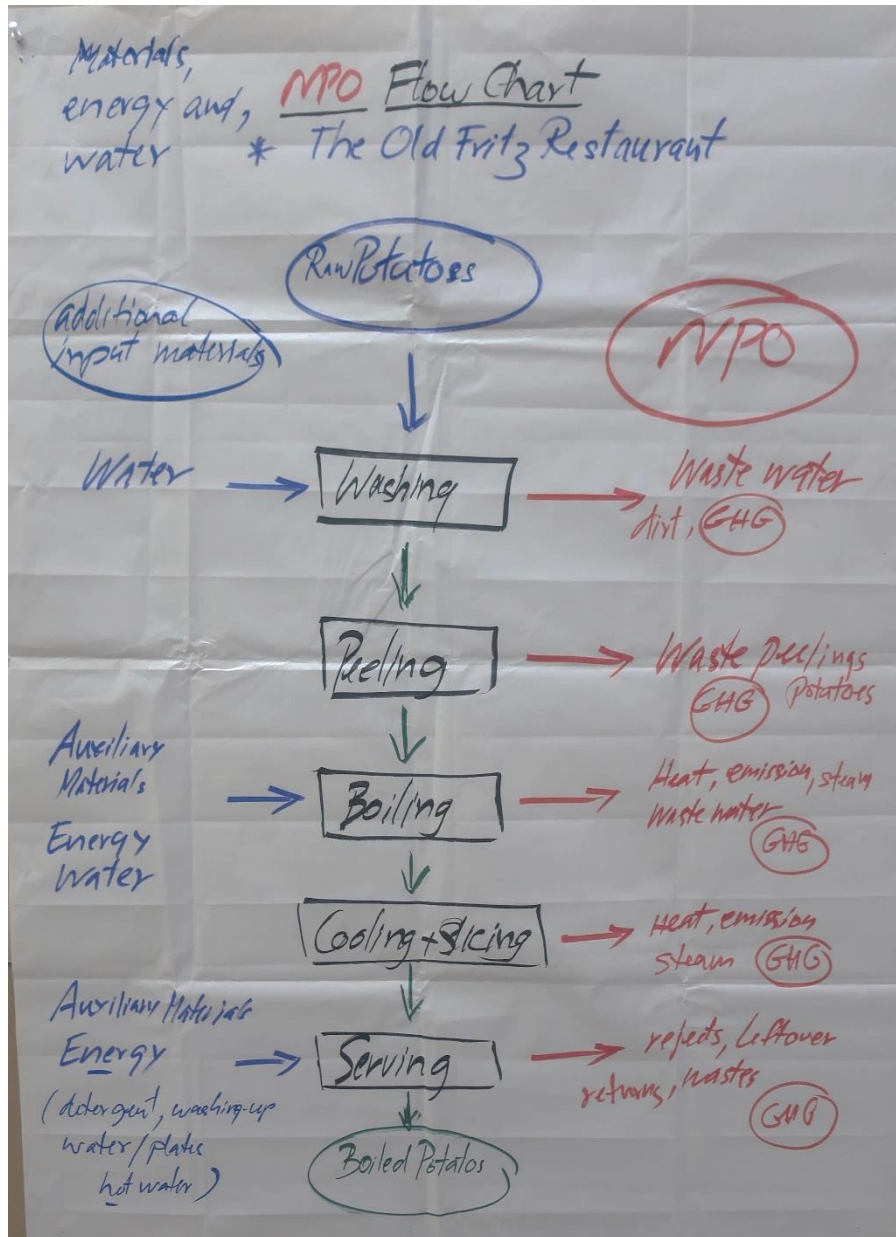 Materials,
energy and, NPO Flow Chart
water * The Old Fritz Restaurant
Raw Potatoes
additional
input materials
NPO
Water
Washing
Waste water
dirt, GHG
Peeling
Waste peelings
GHG potatoes
Auxiliary
Materials
Energy
Water
Boiling
Heat, emission, steam
Waste water
GHG
Cooling + Slicing
Heat, emission
steam GHG
Auxiliary Materials
Energy
(detergent, washing-up
water/plates
hot water)
Serving
rejects, Leftover
returns, wastes
GHG
Boiled Potatos